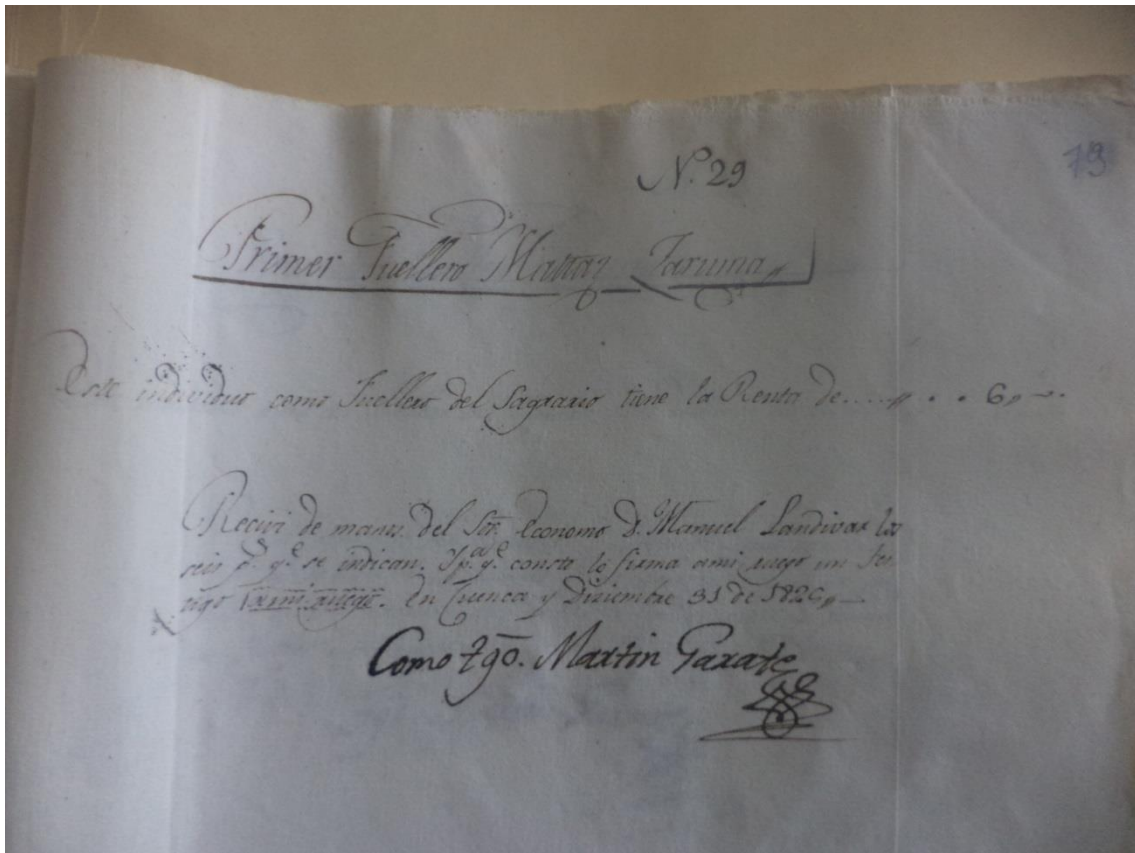 N.º 29
79
Primer Fuellero Matias Taruma„
Este individuo como Fuellero del Sagrario tiene la Renta de....„ . . 6„ -.
Recivi de manos del Sor. Economo D. Manuel Landivar los
seis p.s q.e se indican. Y p.a q.e conste lo firma a mi ruego un tes
tigo a mi ruego. En Cuenca y Diziembre 31 de
Como tgo. Martin Garate